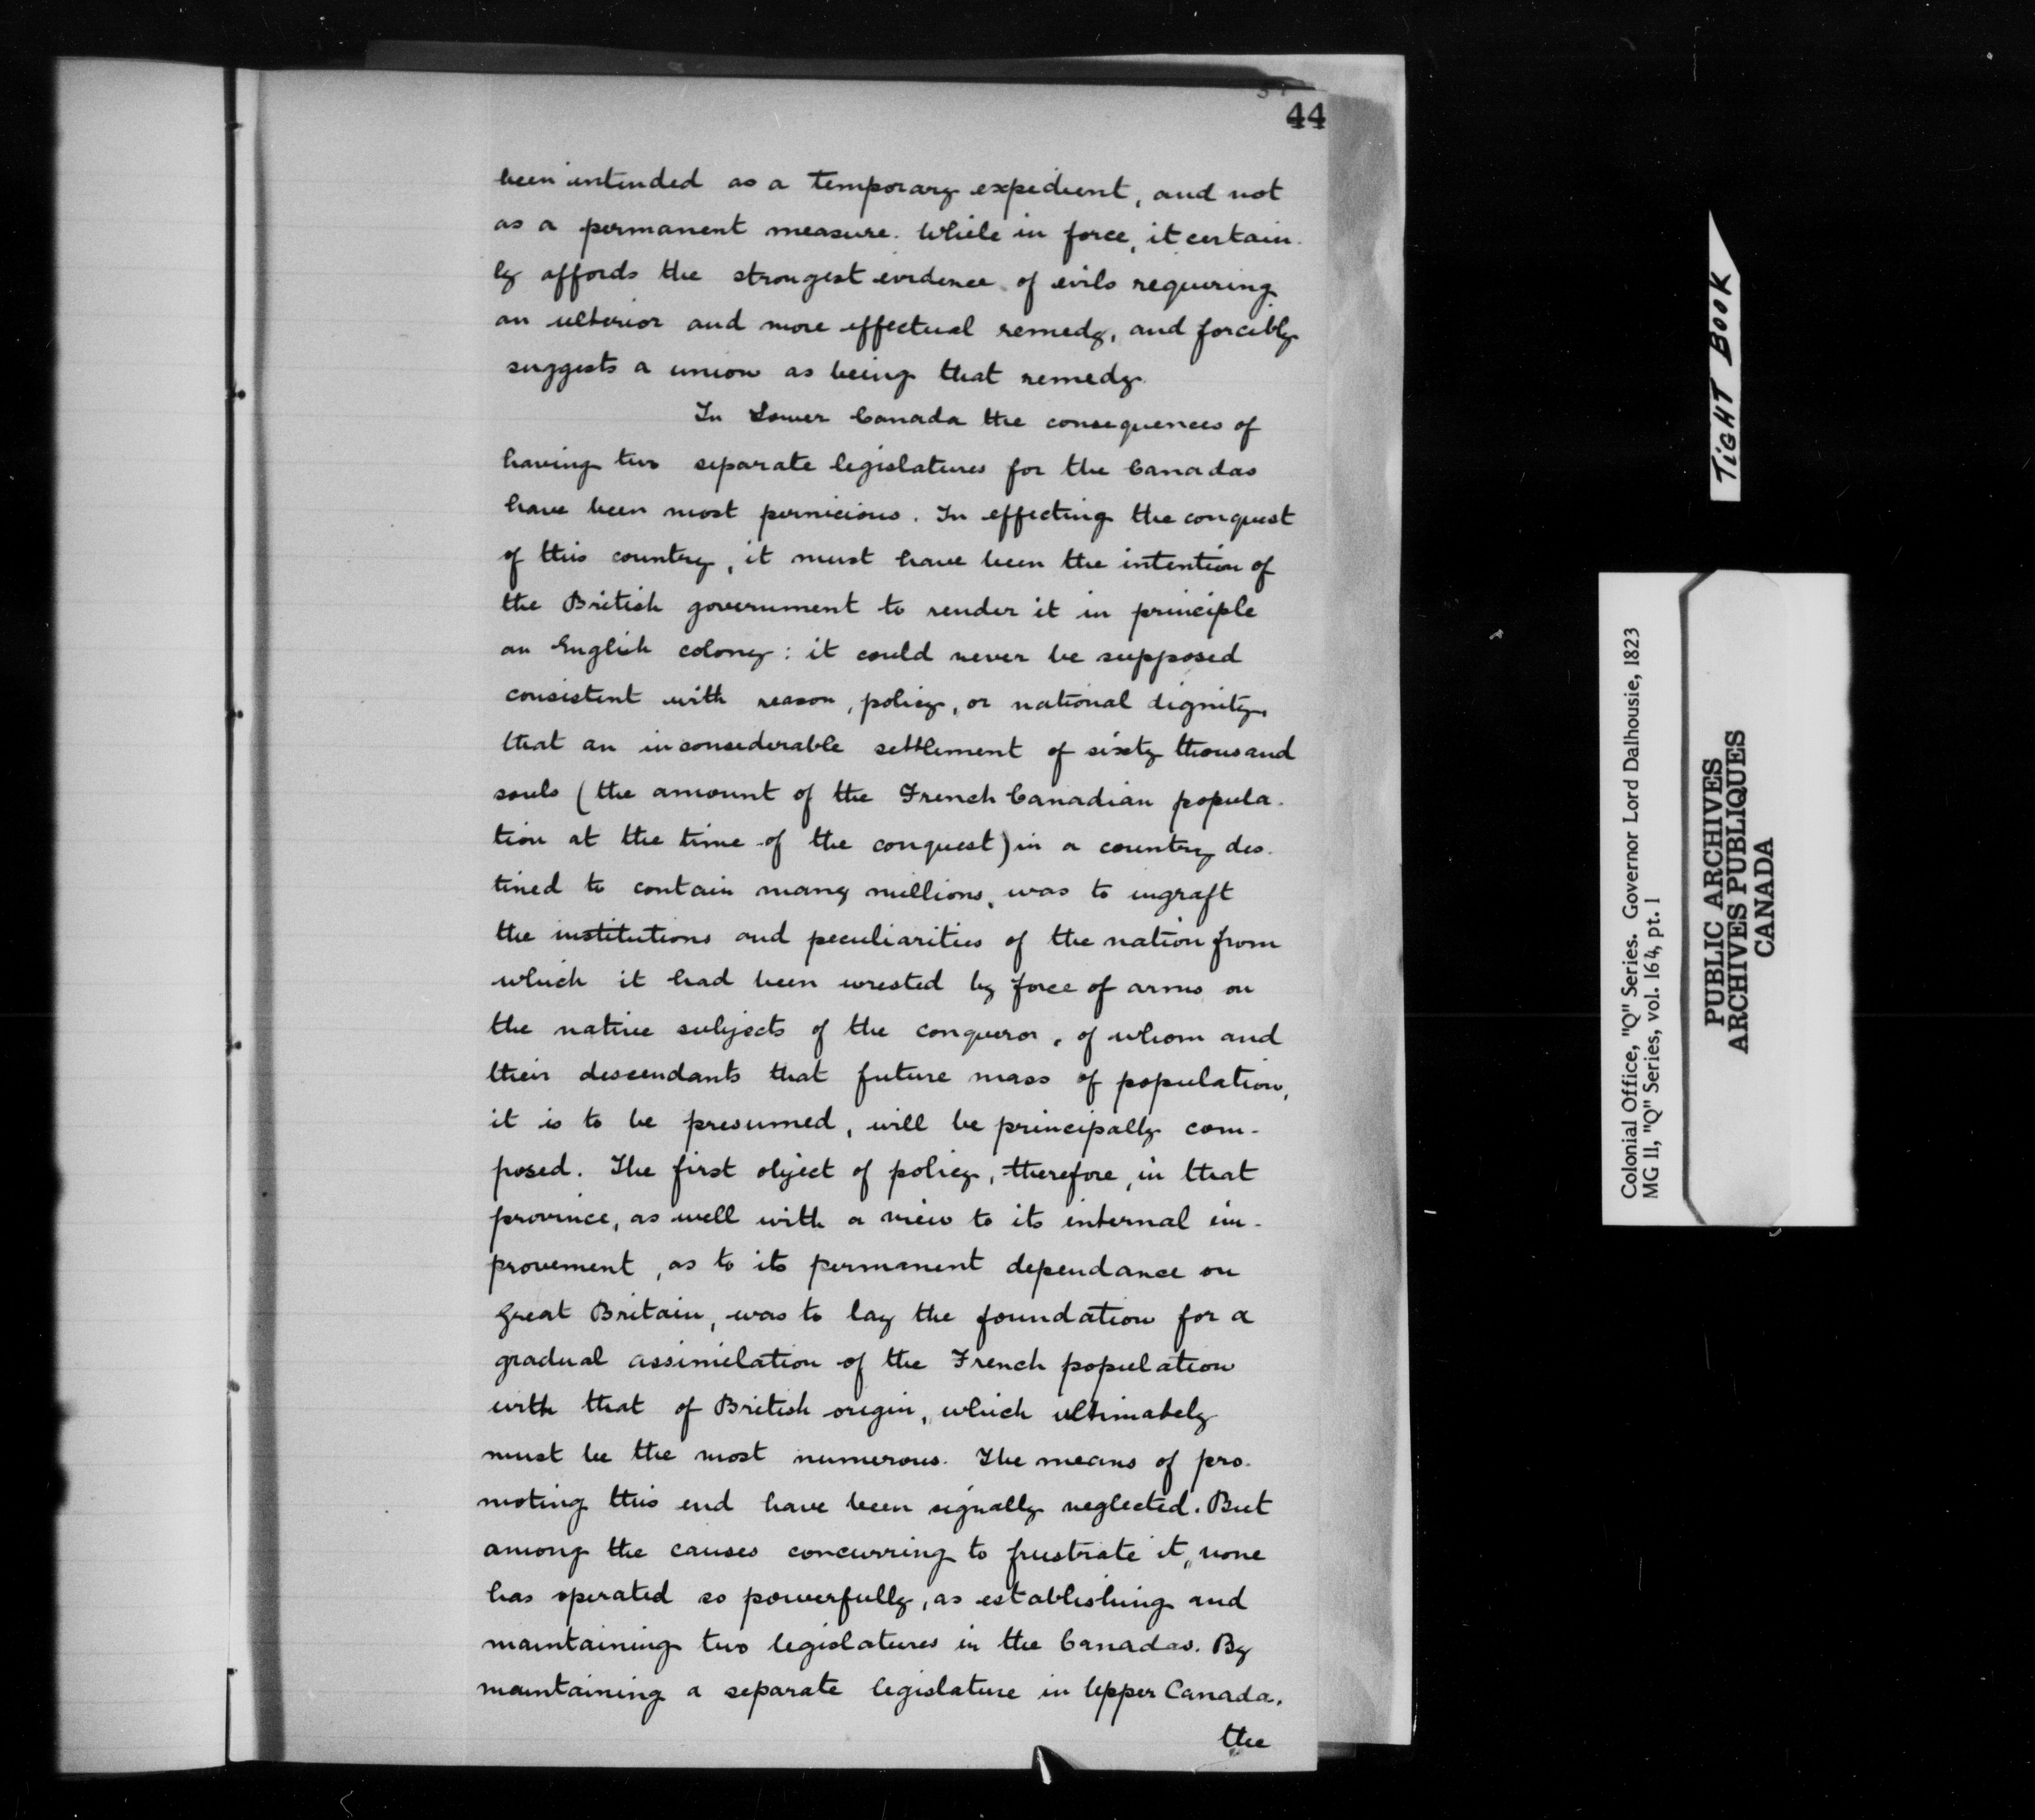 44
been intended as a temporary expedient, and not
as a permanent measure. While in force, it certain-
ly affords the strongest evidence of evils requiring
an ulterior and more effectual remedy, and forcibly
suggests a union as being that remedy.
In Lower Canada the consequences of
having two separate legislatures for the Canadas
have been most pernicious. In effecting the conquest
of this country, it must have been the intention of
the British government to render it in principle
an English colony: it could never be supposed
consistent with reason, policy, or national dignity,
that an inconsiderable settlement of sixty thousand
souls (the amount of the French Canadian popula-
tion at the time of the conquest) in a country des-
tined to contain many millions, was to ingraft
the institutions and peculiarities of the nation from
which it had been wrested by force of arms on
the native subjects of the conqueror, of whom and
their descendants that future mass of population,
it is to be presumed, will be principally com-
posed. The first object of policy, therefore, in that
province, as well with a view to its internal im-
provement, as to its permanent dependance on
Great Britain, was to lay the foundation for a
gradual assimilation of the French population
with that of British origin, which ultimately
must be the most numerous. The means of pro-
moting this end have been signally neglected. But
among the causes concurring to frustrate it, none
has operated so powerfully, as establishing and
maintaining two legislatures in the Canadas. By
maintaining a separate legislature in Upper Canada,
the
TIGHT BOOK
Colonial Office, "Q" Series. Governor Lord Dalhousie, 1823
MG 11, "Q" Series, vol. 164, pt. 1
PUBLIC ARCHIVES
ARCHIVES PUBLIQUES
CANADA